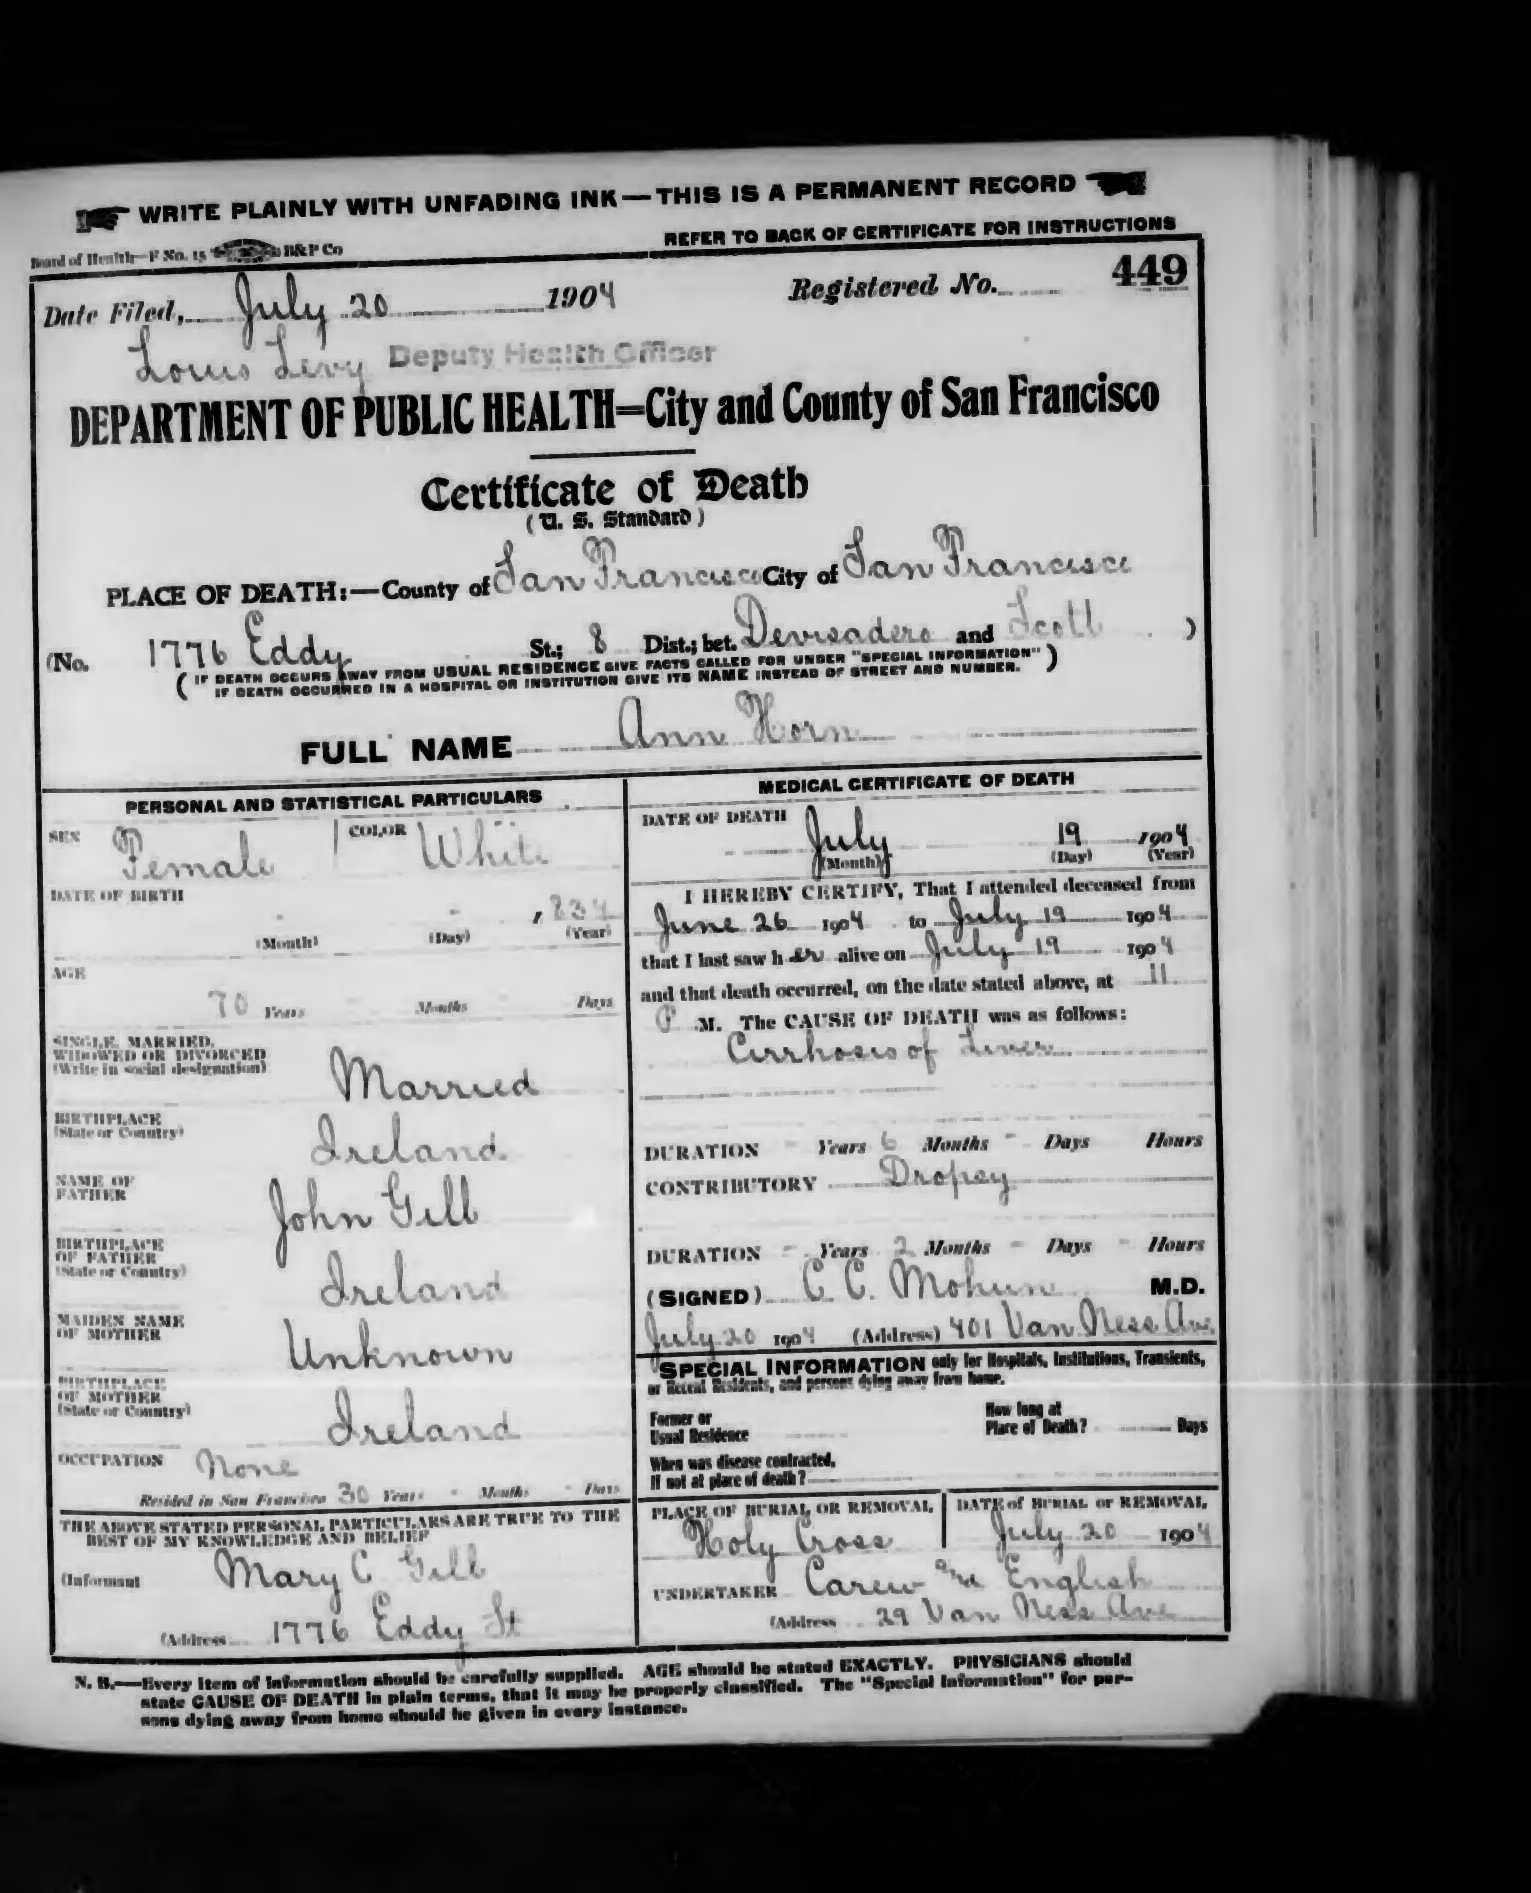 WRITE PLAINLY WITH UNFADING INK — THIS IS A PERMANENT RECORD
Board of Health—F No. 15 B&P Co
REFER TO BACK OF CERTIFICATE FOR INSTRUCTIONS
Date Filed, July 20 1904 Registered No. 449
Louis Levy Deputy Health Officer
DEPARTMENT OF PUBLIC HEALTH=City and County of San Francisco
Certificate of Death
(U. S. Standard)
PLACE OF DEATH:—County of San Francisco City of San Francisco
(No. 1776 Eddy St.; 8 Dist.; bet. Devisadero and Scott )
( IF DEATH OCCURS AWAY FROM USUAL RESIDENCE GIVE FACTS CALLED FOR UNDER "SPECIAL INFORMATION" )
( IF DEATH OCCURRED IN A HOSPITAL OR INSTITUTION GIVE ITS NAME INSTEAD OF STREET AND NUMBER.
FULL NAME Ann Horn
PERSONAL AND STATISTICAL PARTICULARS
SEX Female COLOR White
DATE OF BIRTH
- - , 834
(Month) (Day) (Year)
AGE
70 Years Months Days
SINGLE, MARRIED,
WIDOWED OR DIVORCED
(Write in social designation)
Married
BIRTHPLACE
(State or Country)
Ireland
NAME OF
FATHER
John Gill
BIRTHPLACE
OF FATHER
(State or Country)
Ireland
MAIDEN NAME
OF MOTHER
Unknown
BIRTHPLACE
OF MOTHER
(State or Country)
Ireland
OCCUPATION None
Resided in San Francisco 30 Years - Months - Days
THE ABOVE STATED PERSONAL PARTICULARS ARE TRUE TO THE
BEST OF MY KNOWLEDGE AND BELIEF
(Informant Mary C Gill
(Address 1776 Eddy St
MEDICAL CERTIFICATE OF DEATH
DATE OF DEATH
July 19 1904
(Month) (Day) (Year)
I HEREBY CERTIFY, That I attended deceased from
June 26 1904 to July 19 1904
that I last saw h er alive on July 19 1904
and that death occurred, on the date stated above, at 11
P M. The CAUSE OF DEATH was as follows:
Cirrhosis of Liver
DURATION - Years 6 Months - Days Hours
CONTRIBUTORY Dropsy
DURATION - Years 2 Months - Days - Hours
(SIGNED) C. C. Mohun M.D.
July 20 1904 (Address) 401 Van Ness Ave.
SPECIAL INFORMATION only for Hospitals, Institutions, Transients,
or Recent Residents, and persons dying away from home.
Former or
Usual Residence
How long at
Place of Death? Days
When was disease contracted,
If not at place of death?
PLACE OF BURIAL OR REMOVAL
Holy Cross
DATE of BURIAL or REMOVAL
July 20 1904
UNDERTAKER Carew and English
(Address 29 Van Ness Ave
N. B.—Every item of information should be carefully supplied. AGE should be stated EXACTLY. PHYSICIANS should
state CAUSE OF DEATH in plain terms, that it may be properly classified. The "Special Information" for per-
sons dying away from home should be given in every instance.